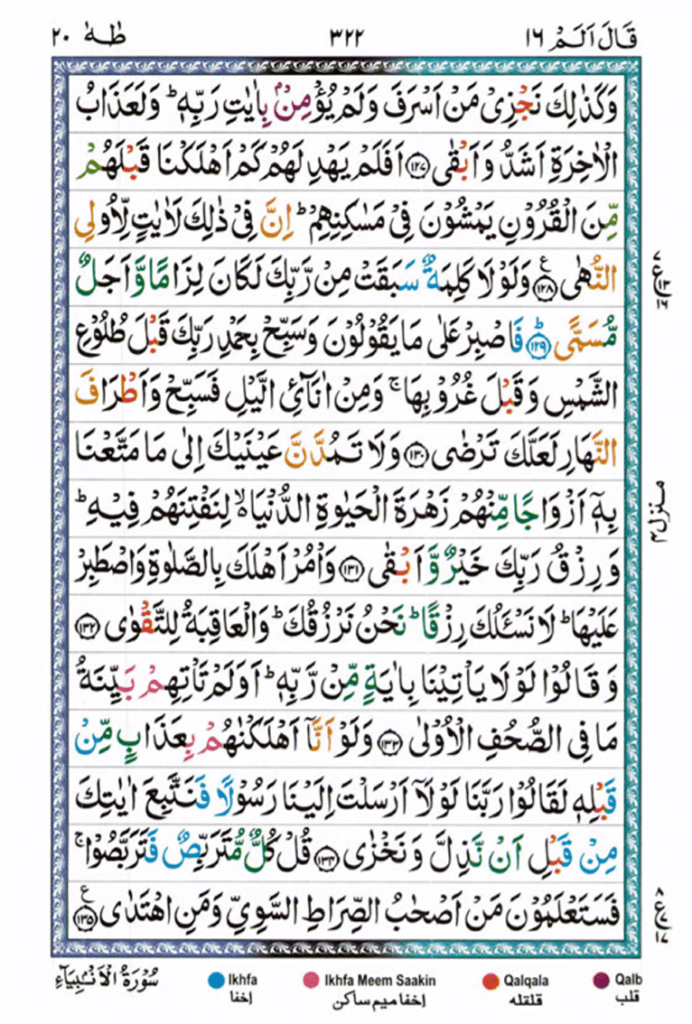 قَالَ اَلَمْ ١٦ ٣٢٢ طٰهٰ ٢٠
وَكَذٰلِكَ نَجْزِىْ مَنْ اَسْرَفَ وَلَمْ يُؤْمِنْۢ بِاٰيٰتِ رَبِّهٖ ؕ وَلَعَذَابُ
الْاٰخِرَةِ اَشَدُّ وَاَبْقٰى ۝۱۲۷ اَفَلَمْ يَهْدِ لَهُمْ كَمْ اَهْلَكْنَا قَبْلَهُمْ
مِّنَ الْقُرُوْنِ يَمْشُوْنَ فِىْ مَسٰكِنِهِمْ ؕ اِنَّ فِىْ ذٰلِكَ لَاٰيٰتٍ لِّاُولِى
النُّهٰى ۝۱۲۸ ع وَلَوْلَا كَلِمَةٌ سَبَقَتْ مِنْ رَّبِّكَ لَكَانَ لِزَامًا وَّاَجَلٌ
مُّسَمًّى ؕ ۝۱۲۹ فَاصْبِرْ عَلٰى مَا يَقُوْلُوْنَ وَسَبِّحْ بِحَمْدِ رَبِّكَ قَبْلَ طُلُوْعِ
الشَّمْسِ وَقَبْلَ غُرُوْبِهَا ۚ وَمِنْ اٰنَآئِ الَّيْلِ فَسَبِّحْ وَاَطْرَافَ
النَّهَارِ لَعَلَّكَ تَرْضٰى ۝۱۳۰ وَلَا تَمُدَّنَّ عَيْنَيْكَ اِلٰى مَا مَتَّعْنَا
بِهٖۤ اَزْوَاجًا مِّنْهُمْ زَهْرَةَ الْحَيٰوةِ الدُّنْيَا ۙ لِنَفْتِنَهُمْ فِيْهِ ؕ
وَرِزْقُ رَبِّكَ خَيْرٌ وَّاَبْقٰى ۝۱۳۱ وَاْمُرْ اَهْلَكَ بِالصَّلٰوةِ وَاصْطَبِرْ
عَلَيْهَا ؕ لَا نَسْـَٔلُكَ رِزْقًا ؕ نَحْنُ نَرْزُقُكَ ؕ وَالْعَاقِبَةُ لِلتَّقْوٰى ۝۱۳۲
وَقَالُوْا لَوْلَا يَاْتِيْنَا بِاٰيَةٍ مِّنْ رَّبِّهٖ ؕ اَوَلَمْ تَاْتِهِمْ بَيِّنَةُ
مَا فِى الصُّحُفِ الْاُوْلٰى ۝۱۳۳ وَلَوْ اَنَّاۤ اَهْلَكْنٰهُمْ بِعَذَابٍ مِّنْ
قَبْلِهٖ لَقَالُوْا رَبَّنَا لَوْلَاۤ اَرْسَلْتَ اِلَيْنَا رَسُوْلًا فَنَتَّبِعَ اٰيٰتِكَ
مِنْ قَبْلِ اَنْ نَّذِلَّ وَنَخْزٰى ۝۱۳۴ قُلْ كُلٌّ مُّتَرَبِّصٌ فَتَرَبَّصُوْا ۚ
فَسَتَعْلَمُوْنَ مَنْ اَصْحٰبُ الصِّرَاطِ السَّوِىِّ وَمَنِ اهْتَدٰى ۝۱۳۵ ع
منزل ۴
Qalb Qalqala Ikhfa Meem Saakin Ikhfa سُوْرَةُ الْاَنْۢبِيَآءِ
قلب قلقله اخفا ميم ساكن اخفا